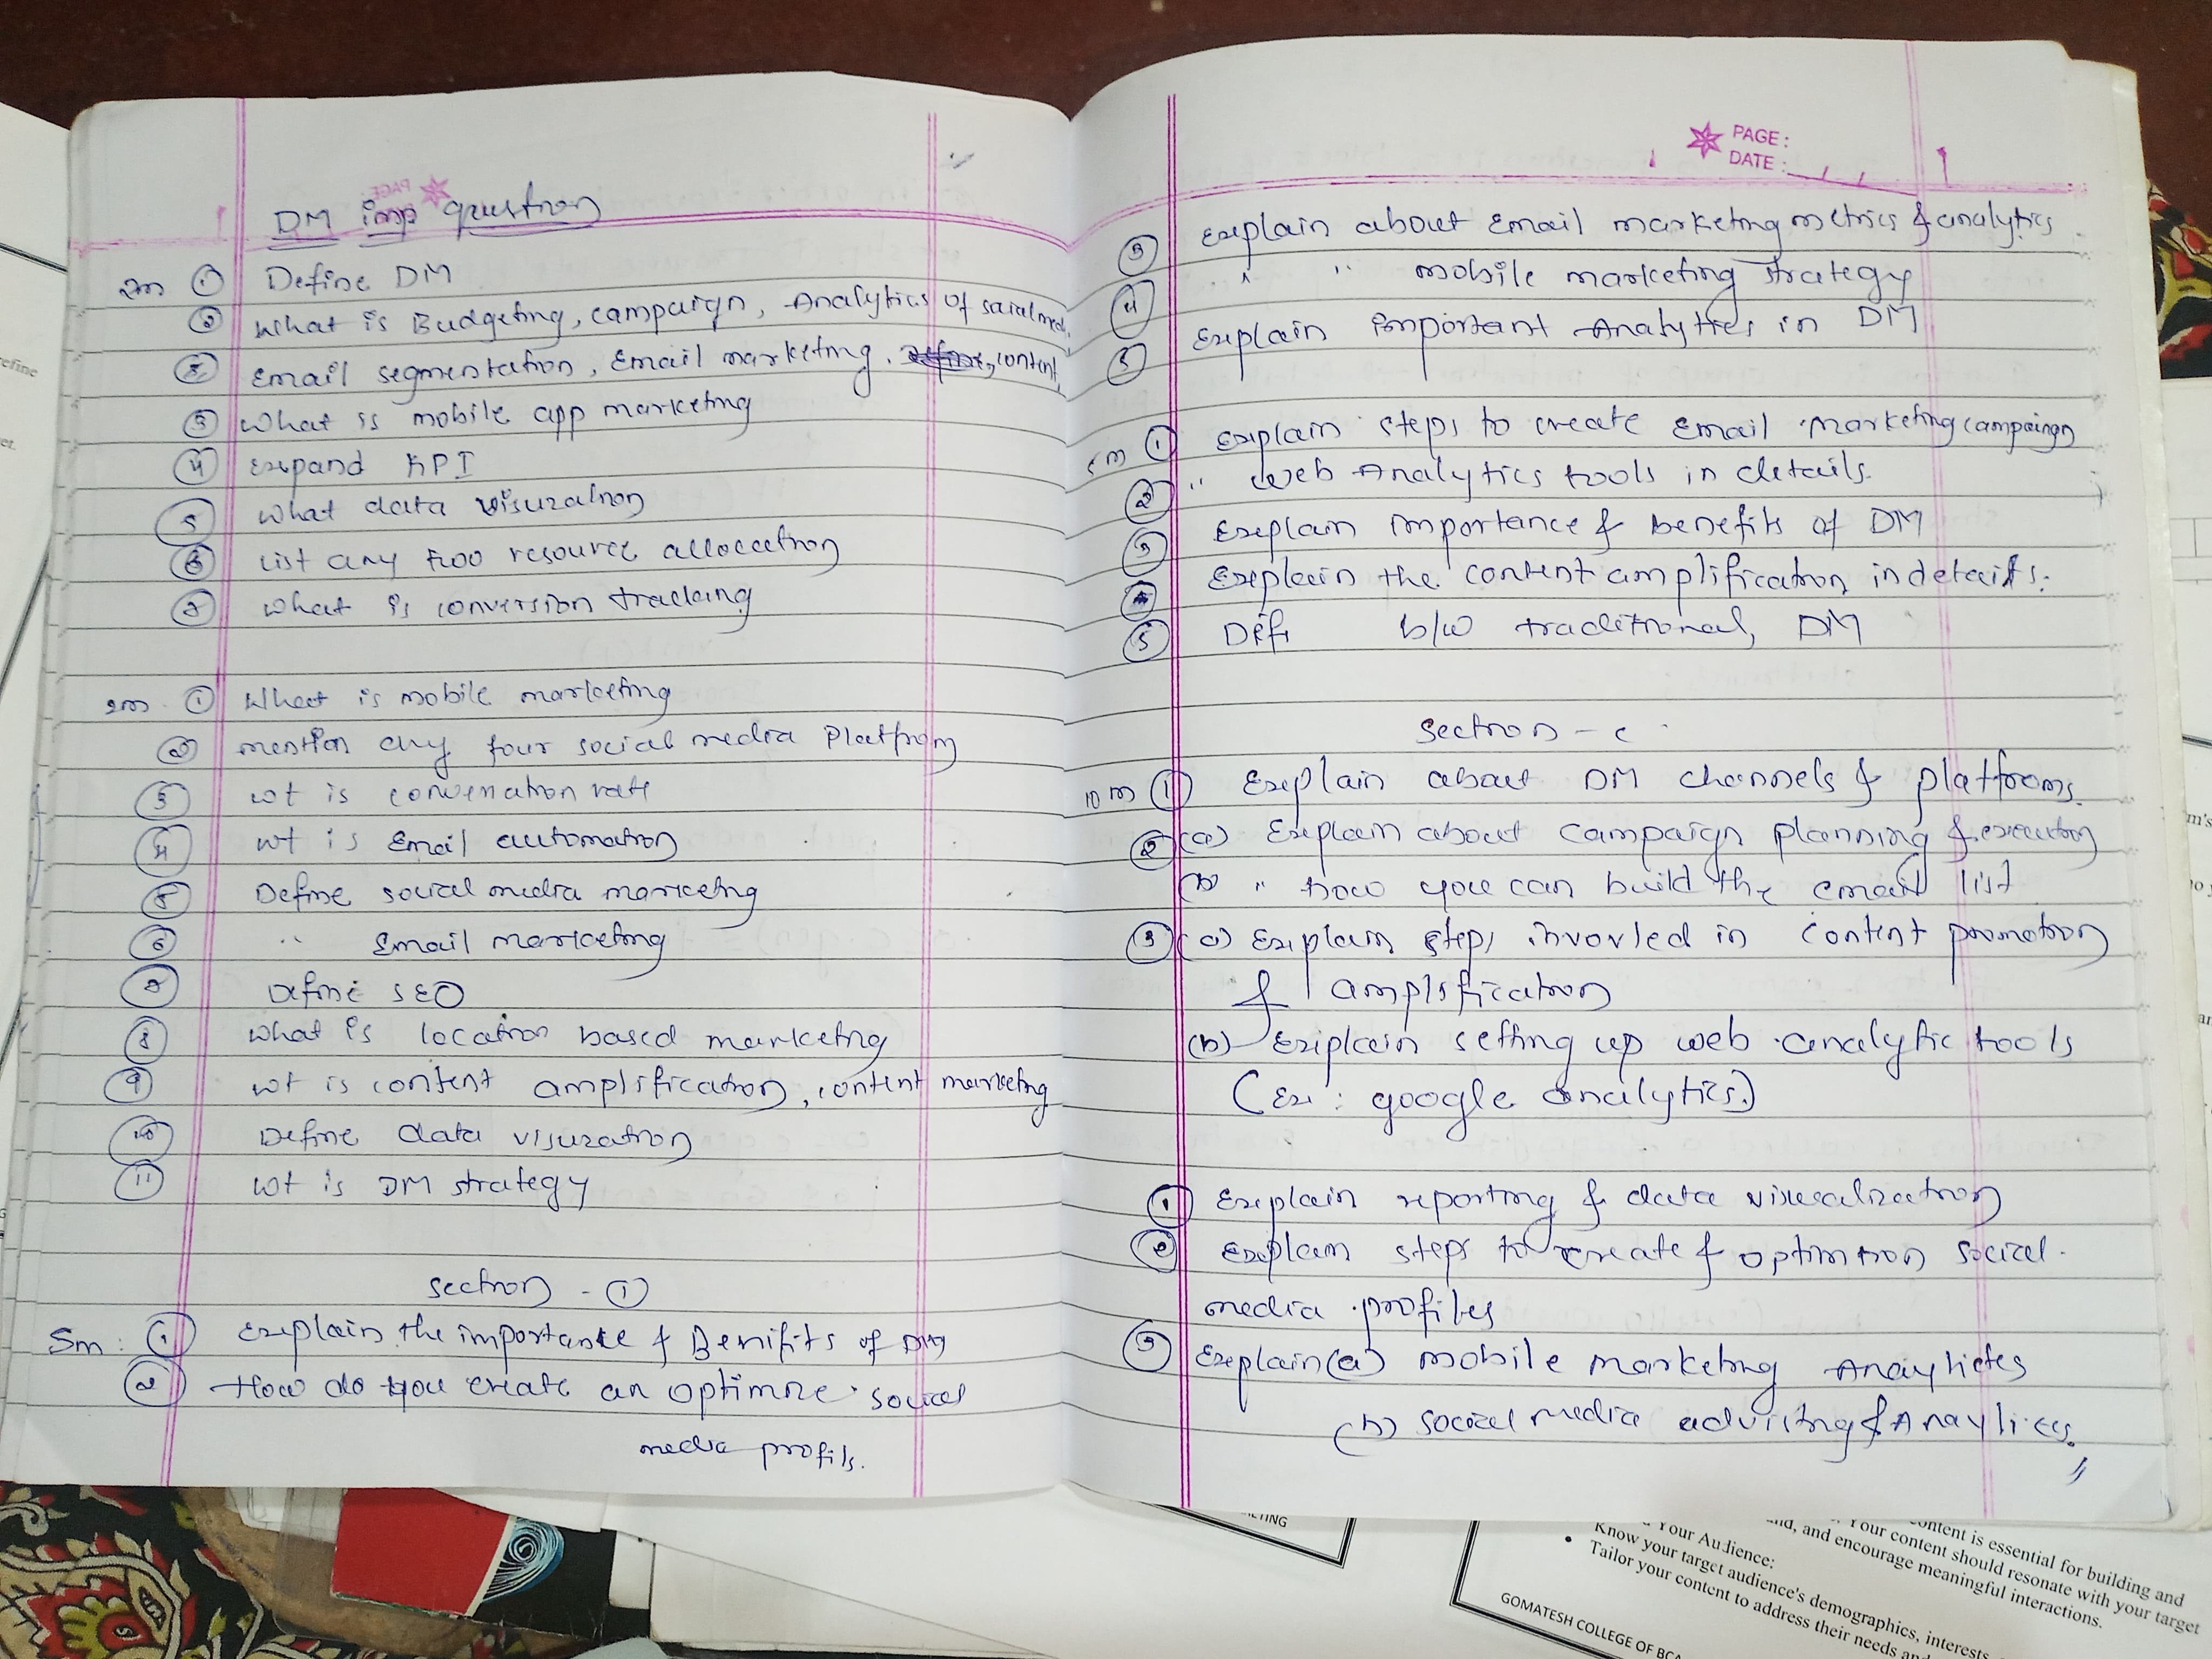 DM imp question
2m ① Define DM
② What is Budgeting, campaign, Analytics of social med.
③ Email segmentation, Email marketing, content,
③ What is mobile app marketing
④ Expand KPI
⑤ What data visuzation
⑥ List any two resource allocation
⑦ What is conversion tracking
2m ① What is mobile marketing
② mention any four social media platfrom
③ wt is rate
④ wt is Email automation
⑤ Define social media marketing
⑥ " Email marketing
⑦ Define SEO
⑧ What is location based marketing
⑨ wt is content amplification, content marketing
⑩ Define data visuzation
⑪ wt is DM strategy
Section - ①
5m : ① Explain the importance & Benifits of DM
② How do you create an optimize social
media profils.
PAGE :
DATE :
③ Explain about Email marketing metrics & analytics
④ " " mobile marketing strategy
⑤ Explain important Analytics in DM
5m ① Explain steps to create Email marketing campaign
② " Web Analytics tools in details.
③ Explain importance & benefits of DM
④ Explain the content amplification in details.
⑤ Diff b/w traditional, DM
Section - c
10m ① Explain about DM channels & platfroms.
② (a) Explain about campaign planning & execution
(b) " how you can build the email list
③ (a) Explain steps invovled in content promotion
& amplification
(b) Explain setting up web analytic tools
(Ex : google analytics.)
① Explain reporting & data visualization
② Explain steps to create & social
media profiles
③ Explain (a) mobile marketing Anayltictes
(b) social media &
ontent is essential for building and
Your content should resonate with your target
and, and encourage meaningful interactions.
Your Audience:
Know your target audience's demographics, interests
• Tailor your content to address their needs and
GOMATESH COLLEGE OF BCA